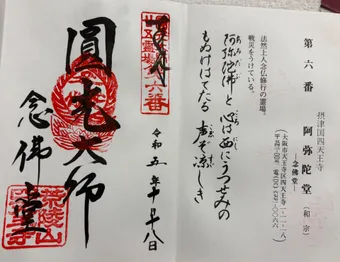 第六番
摂津国四天王寺
阿弥陀堂（和宗）
―念佛堂―
（大阪市天王寺区四天王寺一-一一-一八
法然上人念仏修行の霊場。
戦災をうけている。
阿弥陀佛と心は西にうつせみの
もぬけはてたる声ぞ涼しき
六番
令和五年十一月八日
圓光大師
念佛堂
荒陵山